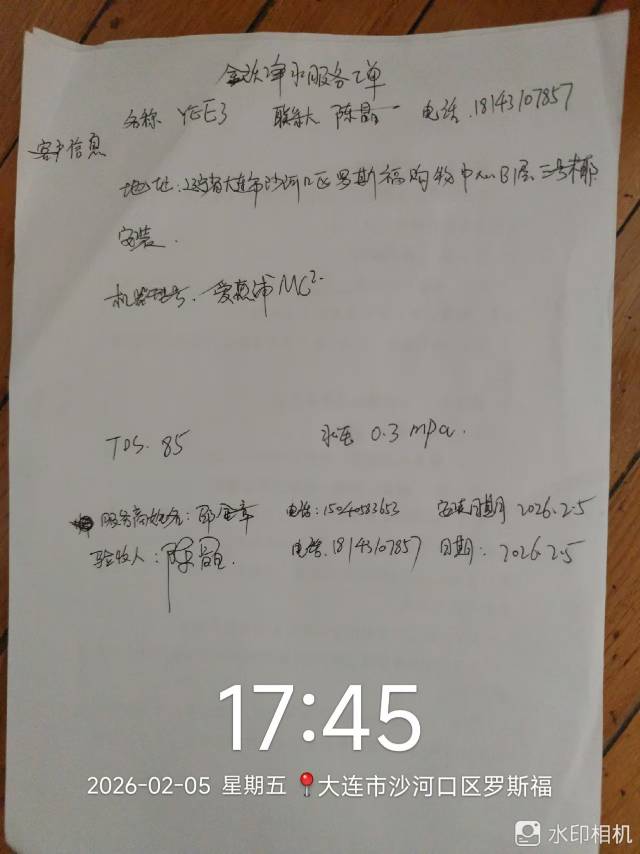 净水服务工单
名称 YEE3 联系人 陈 电话 18143107857
客户信息
地址:辽宁省大连市沙河口区罗斯福购物中心B1层三号椰
安装.
机器型号. 爱惠浦 MC².
TDS. 85 水压 0.3 mpa.
服务商姓名: 电话:15040583653 安装日期 2026.2.5
验收人: 陈 电话.18143107857 日期: 2026.2.5
17:45
2026-02-05 星期五 大连市沙河口区罗斯福
水印相机